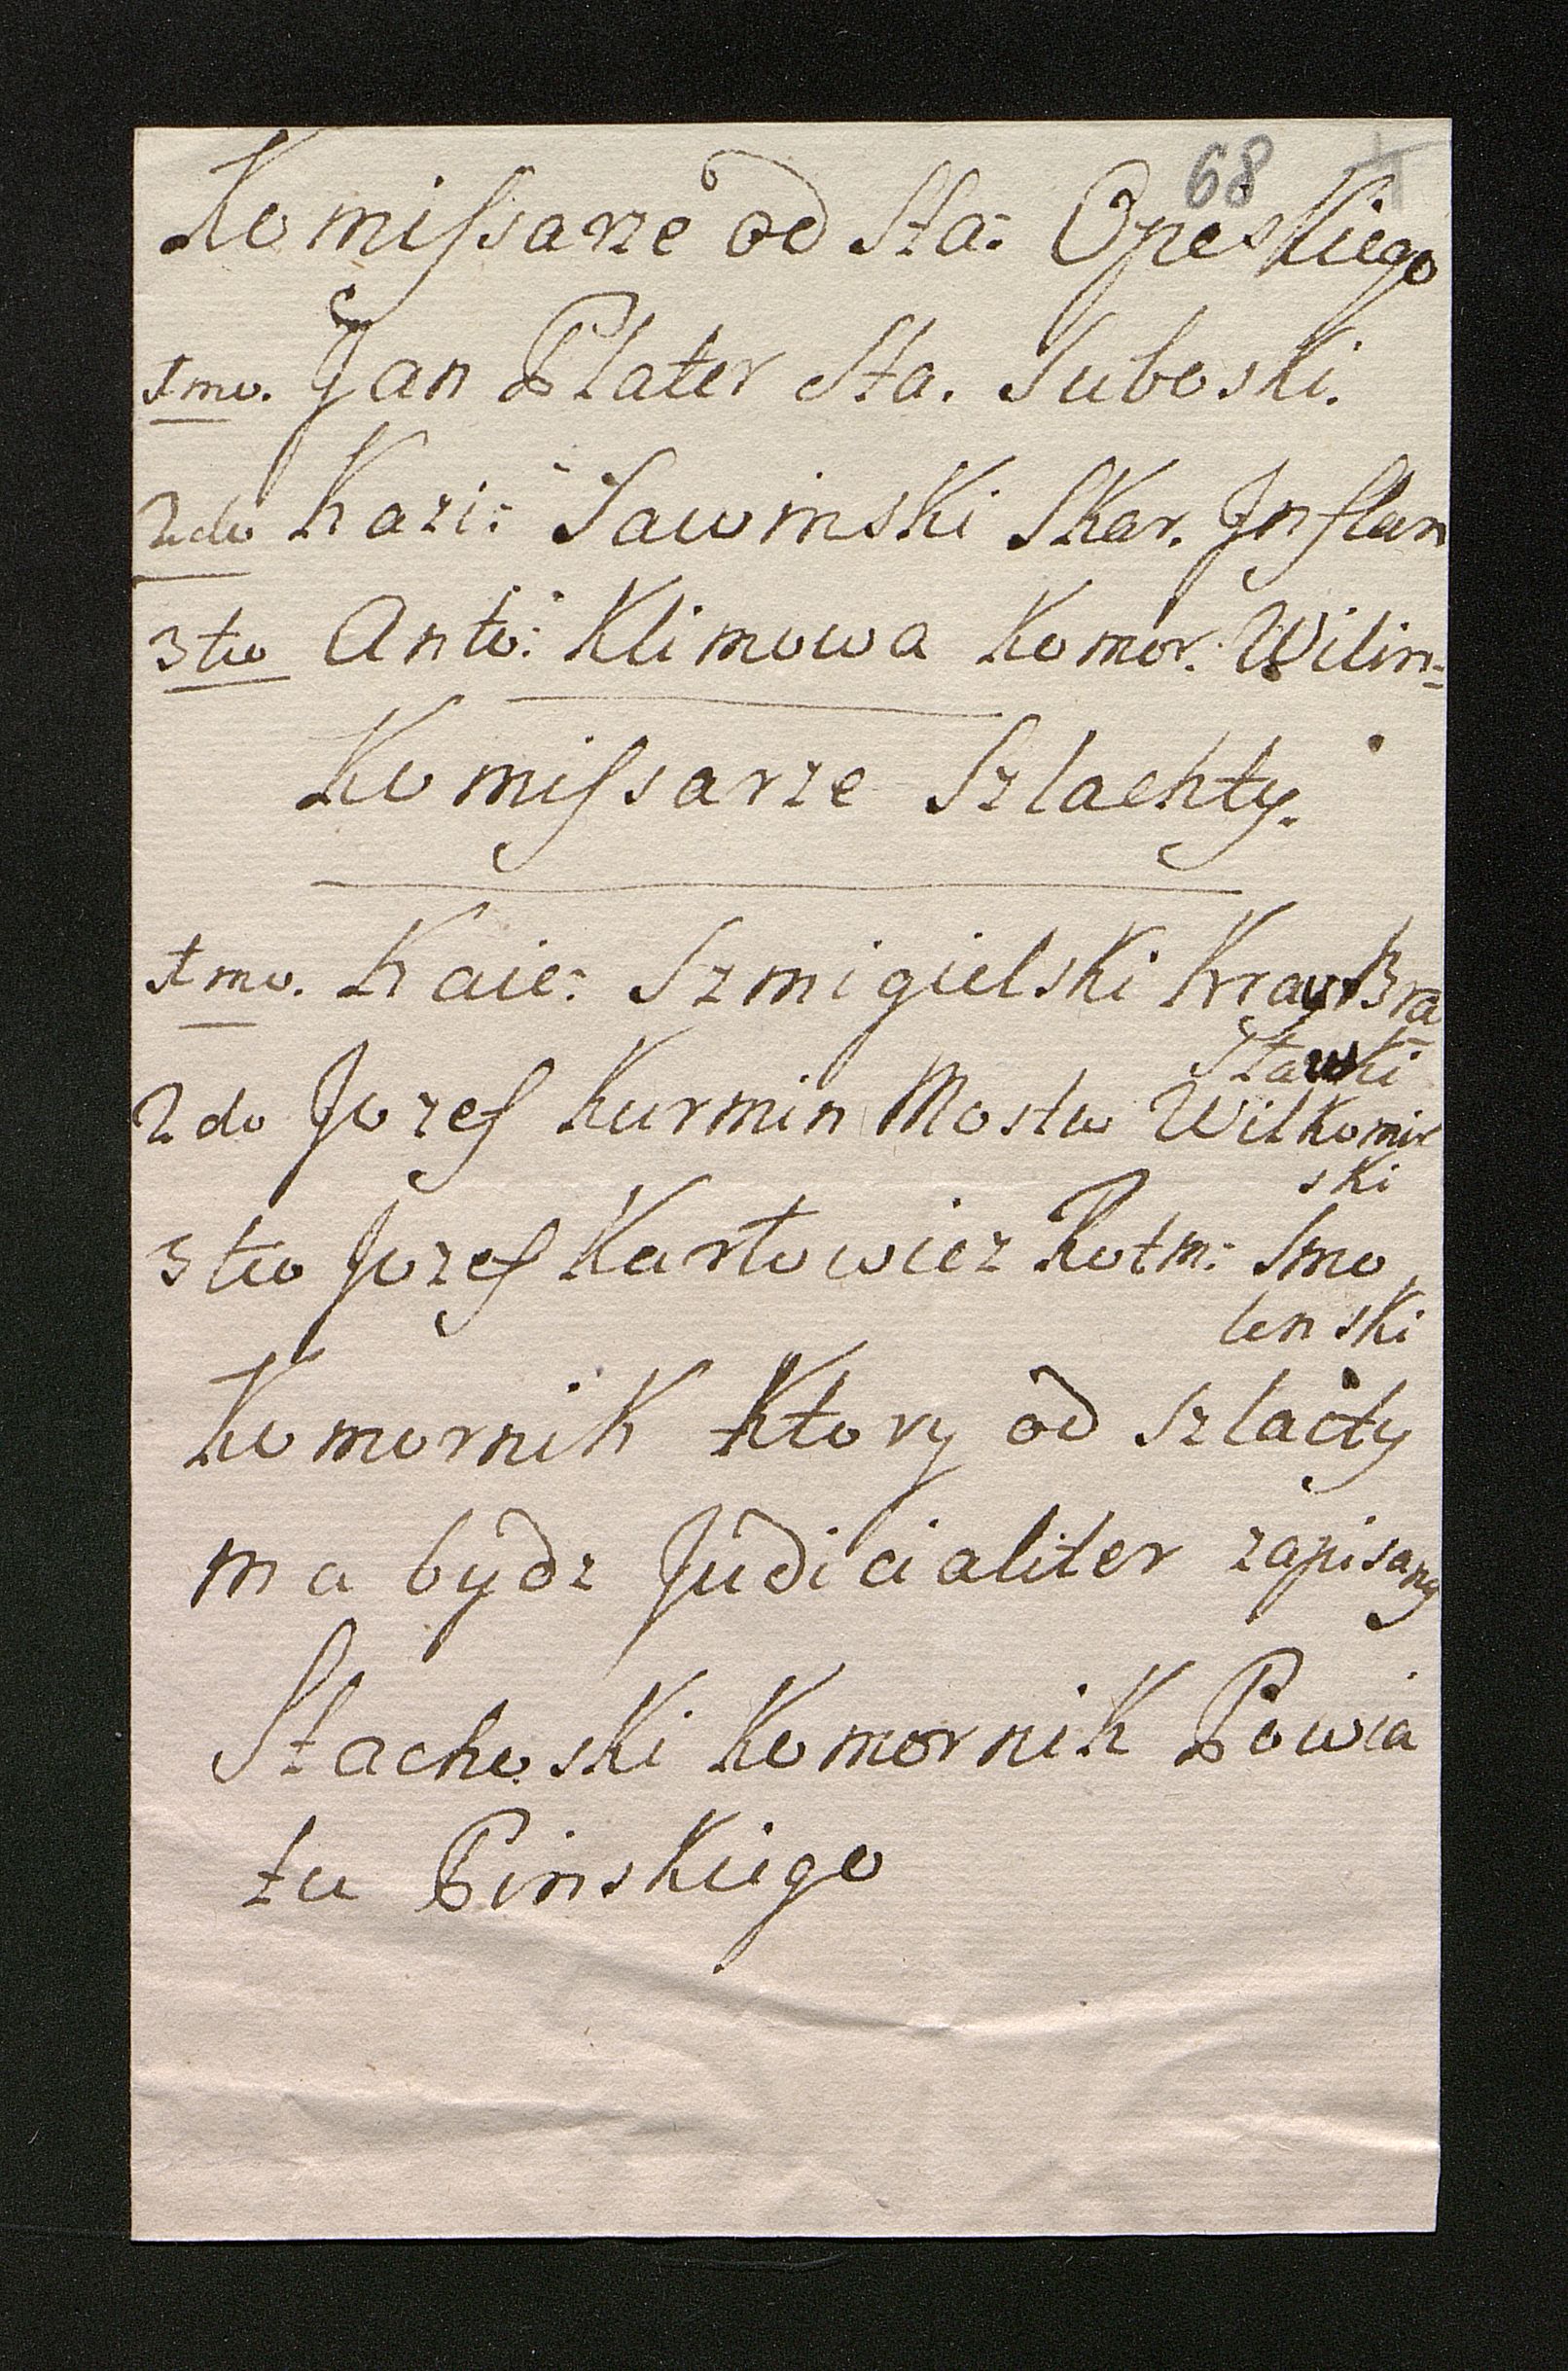 68
Komissarze od Sta: Opeskiego
1mo. Jan Plater Sta. Suboski.
2do Kazi: Sawinski Skar. Inflan
3tio Anto: Klimowa Komor: Wilin=
Komissarze Szlachty.
1mo. Kaie: Szmigielski Kray Bra
sławski
2do Jozef Kurmin Mostw Wilkomir
ski
3tio Jozef Karłowicz Rotm: Smo
lenski
Komornik Ktory od szlachty
ma bydz Judicialiter zapisany
Stachoski Komornik Powia
tu Pinskiego